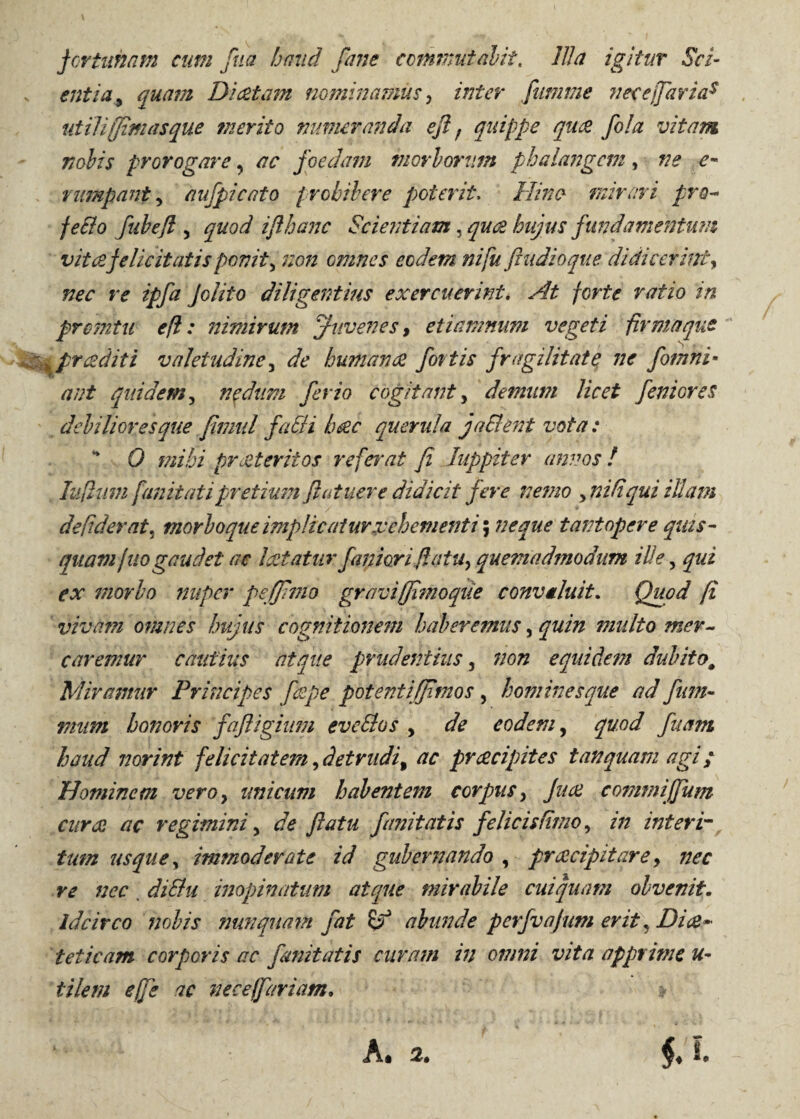 fortunam cum ſua haud ſane commutabit. Illa igitur Sci-
entia, quam Diætam nominamus, inter ſumme neceſſarias
utiliſſimasque merito numeranda eſt, quippe quæ ſola vitam
nobis prorogare, ac foedam morborum phalangem, ne e-
rumpant, auſpicato prohibere poterit. Hinc mirari pro-
fecto ſubeſt, quod iſthanc Scientiam, quæ hujus fundamentum
vitæ felicitatis ponit, non omnes eodem niſu ſtudioque didicerint,
nec re ipſa ſolito diligentius exercuerint. At forte ratio in
promtu eſt: nimirum Juvenes, etiamnum vegeti firmaque
præditi valetudine, de humanæ ſortis fragilitate ne ſomni-
ant quidem, nedum ſerio cogitant, demum licet ſeniores
debilioresque ſimul facti hæc querula jactent vota:
O mihi præteritos referat ſi Juppiter annos!
Juſtum ſanitati pretium ſtatuere didicit fere nemo, niſi qui illam
deſiderat, morboque implicatur vehementi; neque tantopere quis-
quam ſuo gaudet ac lætatur ſaniori ſtatu, quemadmodum ille, qui
ex morbo nuper peſſimo graviſſimoque convaluit. Quod ſi
vivam omnes hujus cognitionem haberemus, quin multo mer-
caremur cautius atque prudentius, non equidem dubito.
Miramur Principes ſæpe potentiſſimos, hominesque ad ſum-
mum honoris faſtigium evectos, de eodem, quod ſuam
haud norint felicitatem, detrudi, ac præcipites tanquam agi;
Hominem vero, unicum habentem corpus, ſuæ commiſſum
curæ ac regimini, de ſtatu ſanitatis felicisſimo, in interi-
tum usque, immoderate id gubernando, præcipitare, nec
re nec dictu inopinatum atque mirabile cuiquam obvenit.
Idcirco nobis nunquam ſat & abunde perſvaſum erit, Diæ-
teticam corporis ac ſanitatis curam in omni vita apprime u-
tilem eſſe ac neceſſariam.
A. 2. §. I.